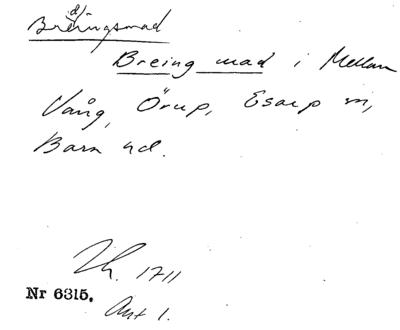 Breingsmad
Breing mad i Mellan
Vång, Örup, Esarp m,
Bara hd.
Lh. 1711
Nr 6315.
Ant 1.